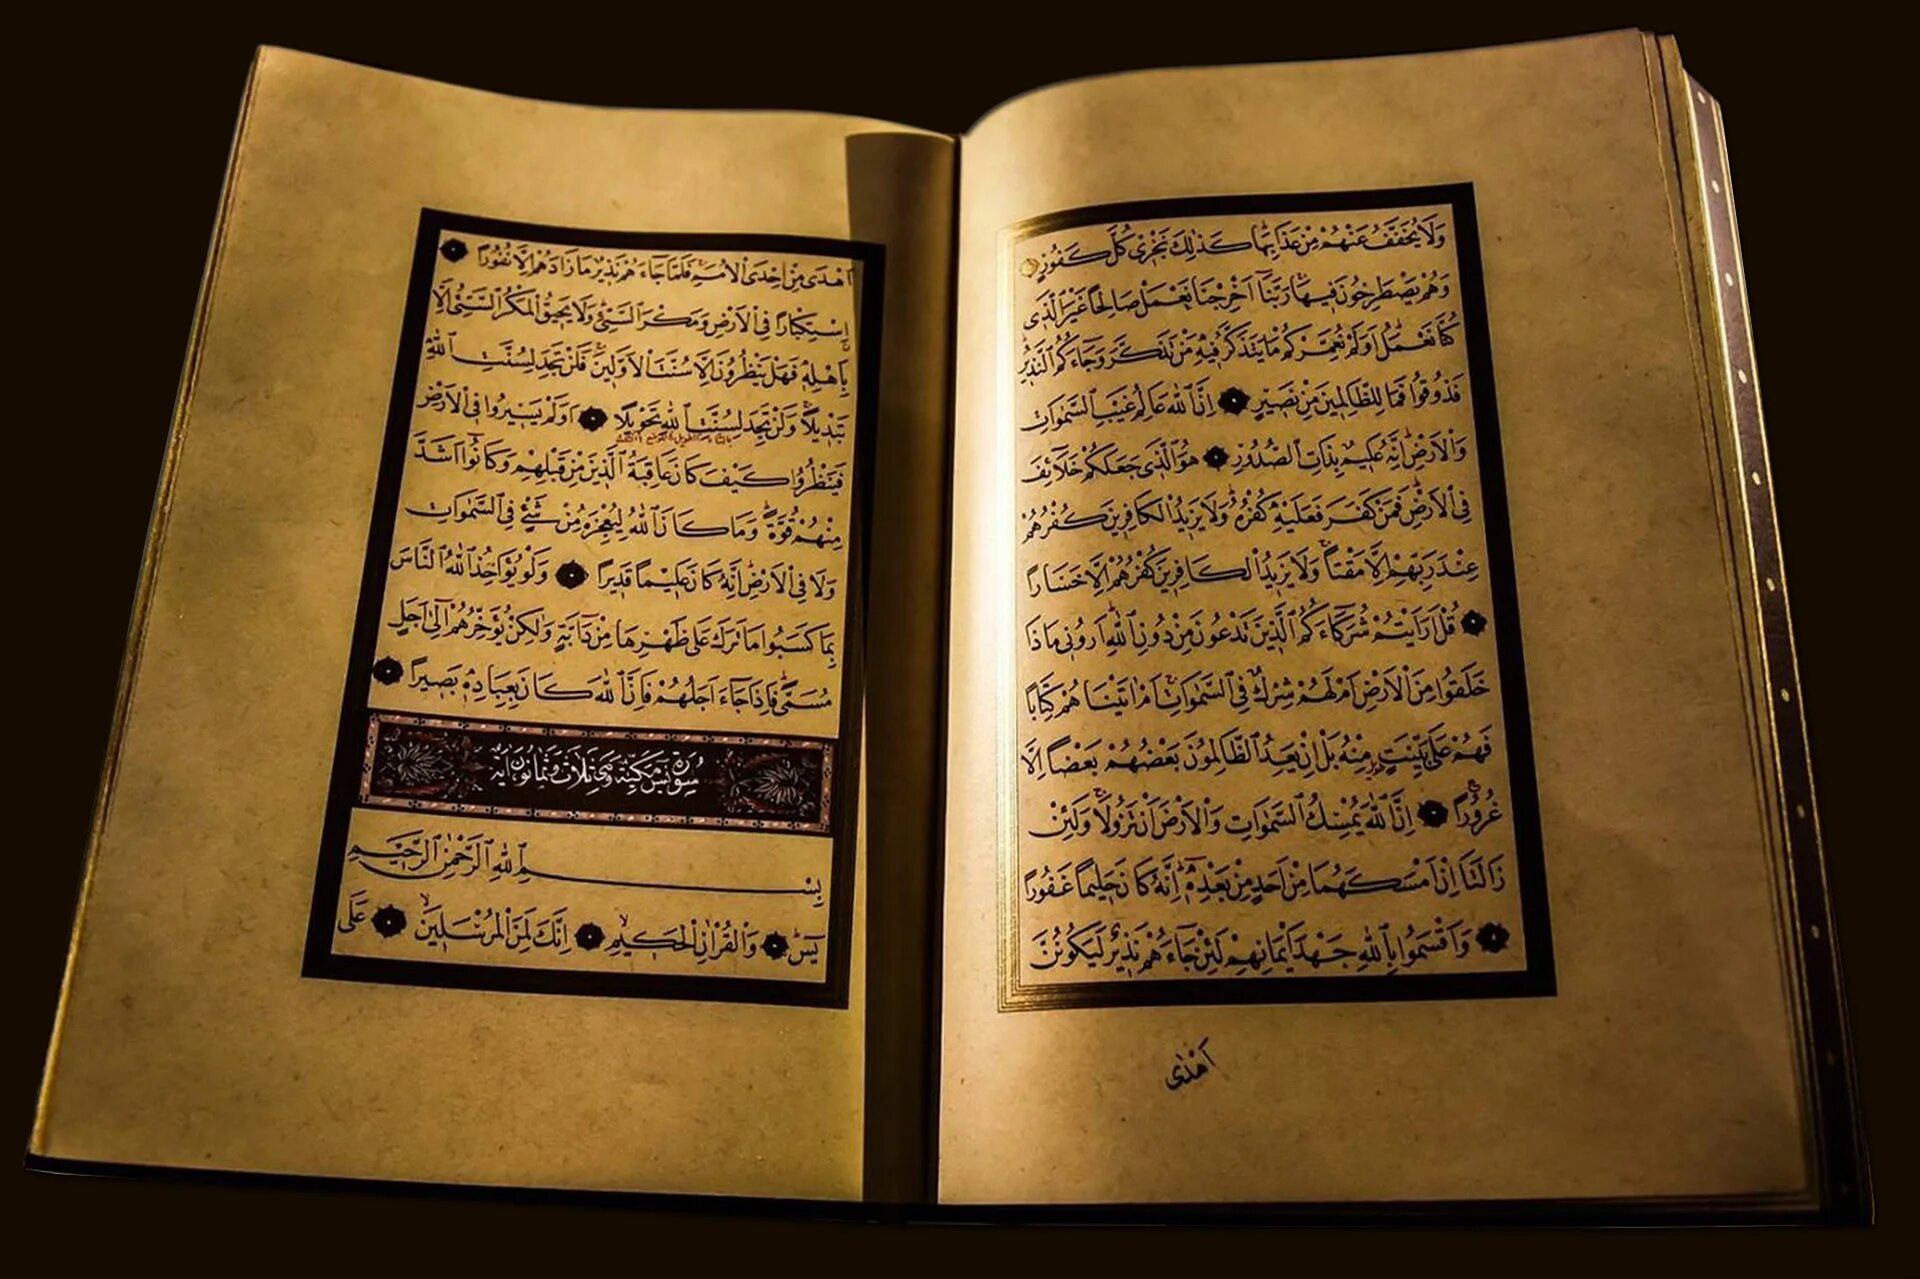 وَلَا يُخَفَّفُ عَنْهُمْ مِنْ عَذَابِهَا كَذٰلِكَ نَجْزٖى كُلَّ كَفُورٍ
وَهُمْ يَصْطَرِخُونَ فٖيهَا رَبَّنَٓا اَخْرِجْنَا نَعْمَلْ صَالِحًا غَيْرَ الَّذٖى
كُنَّا نَعْمَلُ اَوَلَمْ نُعَمِّرْكُمْ مَا يَتَذَكَّرُ فٖيهِ مَنْ تَذَكَّرَ وَجَٓاءَكُمُ النَّذٖيرُ
فَذُوقُوا فَمَا لِلظَّالِمٖينَ مِنْ نَصٖيرٍ اِنَّ اللّٰهَ عَالِمُ غَيْبِ السَّمٰوَاتِ
وَالْاَرْضِ اِنَّهُ عَلٖيمٌ بِذَاتِ الصُّدُورِ هُوَ الَّذٖى جَعَلَكُمْ خَلَٓائِفَ
فِى الْاَرْضِ فَمَنْ كَفَرَ فَعَلَيْهِ كُفْرُهُ وَلَا يَزٖيدُ الْكَافِرٖينَ كُفْرُهُمْ
عِنْدَ رَبِّهِمْ اِلَّا مَقْتًا وَلَا يَزٖيدُ الْكَافِرٖينَ كُفْرُهُمْ اِلَّا خَسَارًا
قُلْ اَرَاَيْتُمْ شُرَكَٓاءَكُمُ الَّذٖينَ تَدْعُونَ مِنْ دُونِ اللّٰهِ اَرُونٖى مَاذَا
خَلَقُوا مِنَ الْاَرْضِ اَمْ لَهُمْ شِرْكٌ فِى السَّمٰوَاتِ اَمْ اٰتَيْنَاهُمْ كِتَابًا
فَهُمْ عَلٰى بَيِّنَتٍ مِنْهُ بَلْ اِنْ يَعِدُ الظَّالِمُونَ بَعْضُهُمْ بَعْضًا اِلَّا
غُرُورًا اِنَّ اللّٰهَ يُمْسِكُ السَّمٰوَاتِ وَالْاَرْضَ اَنْ تَزُولَا وَلَئِنْ
زَالَتَٓا اِنْ اَمْسَكَهُمَا مِنْ اَحَدٍ مِنْ بَعْدِهٖ اِنَّهُ كَانَ حَلٖيمًا غَفُورًا
وَاَقْسَمُوا بِاللّٰهِ جَهْدَ اَيْمَانِهِمْ لَئِنْ جَٓاءَهُمْ نَذٖيرٌ لَيَكُونُنَّ
اَهْدٰى
اَهْدٰى مِنْ اِحْدَى الْاُمَمِ فَلَمَّا جَٓاءَهُمْ نَذٖيرٌ مَا زَادَهُمْ اِلَّا نُفُورًا
اِسْتِكْبَارًا فِى الْاَرْضِ وَمَكْرَ السَّيِّئِ وَلَا يَحٖيقُ الْمَكْرُ السَّيِّئُ اِلَّا
بِاَهْلِهٖ فَهَلْ يَنْظُرُونَ اِلَّا سُنَّتَ الْاَوَّلٖينَ فَلَنْ تَجِدَ لِسُنَّتِ اللّٰهِ
تَبْدٖيلًا وَلَنْ تَجِدَ لِسُنَّتِ اللّٰهِ تَحْوٖيلًا اَوَلَمْ يَسٖيرُوا فِى الْاَرْضِ
فَيَنْظُرُوا كَيْفَ كَانَ عَاقِبَةُ الَّذٖينَ مِنْ قَبْلِهِمْ وَكَانُٓوا اَشَدَّ
مِنْهُمْ قُوَّةً وَمَا كَانَ اللّٰهُ لِيُعْجِزَهُ مِنْ شَيْئٍ فِى السَّمٰوَاتِ
وَلَا فِى الْاَرْضِ اِنَّهُ كَانَ عَلٖيمًا قَدٖيرًا وَلَوْ يُؤَاخِذُ اللّٰهُ النَّاسَ
بِمَا كَسَبُوا مَا تَرَكَ عَلٰى ظَهْرِهَا مِنْ دَٓابَّةٍ وَلٰكِنْ يُؤَخِّرُهُمْ اِلٰٓى اَجَلٍ
مُسَمًّى فَاِذَا جَٓاءَ اَجَلُهُمْ فَاِنَّ اللّٰهَ كَانَ بِعِبَادِهٖ بَصٖيرًا
سُورَةُ يٰسٓ مَكِّيَّةٌ وَهِىَ ثَلَاثٌ وَثَمَانُونَ اٰيَةً
بِسْمِ اللّٰهِ الرَّحْمٰنِ الرَّحٖيمِ
يٰسٓ وَالْقُرْاٰنِ الْحَكٖيمِ اِنَّكَ لَمِنَ الْمُرْسَلٖينَ عَلٰى